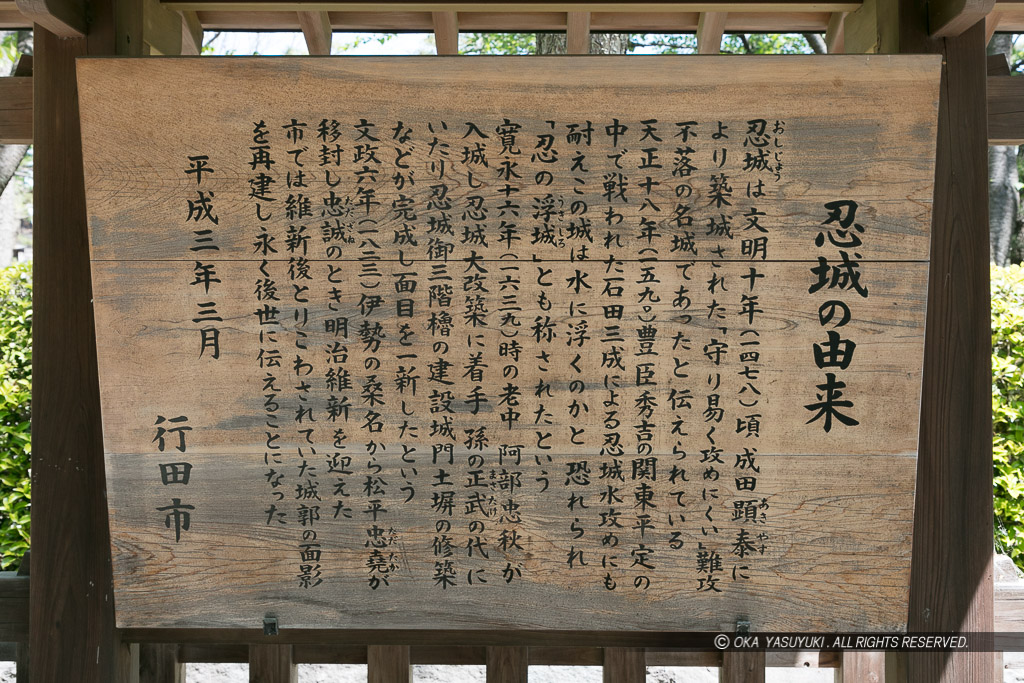 忍城の由来
忍城は文明十年(一四七八)頃 成田顕泰に
おしじょう
あき やす
より築城された「守り易く攻めにくい」難攻
不落の名城であったと伝えられている
天正十八年(一五九〇)豊臣秀吉の関東平定の
中で戦われた石田三成による忍城水攻めにも
耐えこの城は水に浮くのかと 恐れられ
「忍の浮城」とも称されたという
うきしろ
寛永十六年(一六三九)時の老中 阿部忠秋が
入城し忍城大改築に着手 孫の正武の代に
まさたけ
いたり忍城御三階櫓の建設城門土塀の修築
などが完成し面目を一新したという
文政六年(一八二三)伊勢の桑名から松平忠堯が
ただ たか
移封し忠誠のとき明治維新を迎えた
ただざね
市では維新後とりこわされていた城郭の面影
を再建し永く後世に伝えることになった
平成三年三月
行田市
© OKA YASUYUKI. ALL RIGHTS RESERVED.